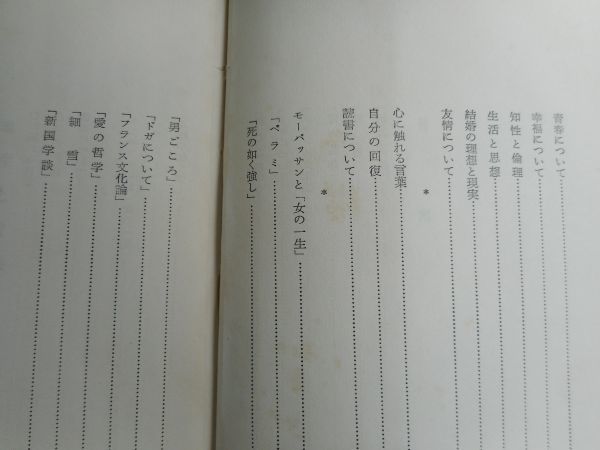 青春について
幸福について
知性と倫理
生活と思想
結婚の理想と現実
友情について
*
心に触れる言葉
自分の回復
読書について
*
モーパッサンと「女の一生」
「ベラミ」
「死の如く強し」
「男ごころ」
「ドガについて」
「フランス文化論」
「愛の哲学」
「細雪」
「新国学談」